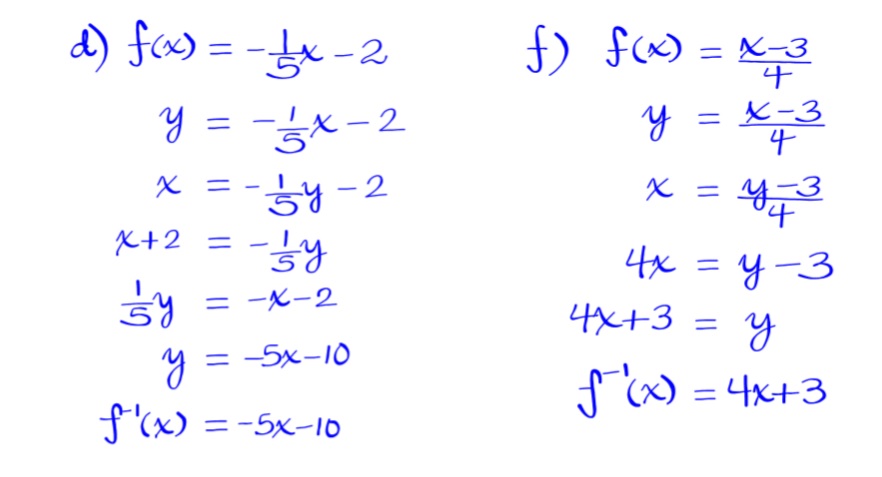 d) f(x) = -1/5x - 2
y = -1/5x - 2
x = -1/5y - 2
x+2 = -1/5y
1/5y = -x-2
y = -5x-10
f⁻¹(x) = -5x-10
f) f(x) = x-3/4
y = x-3/4
x = y-3/4
4x = y-3
4x+3 = y
f⁻¹(x) = 4x+3